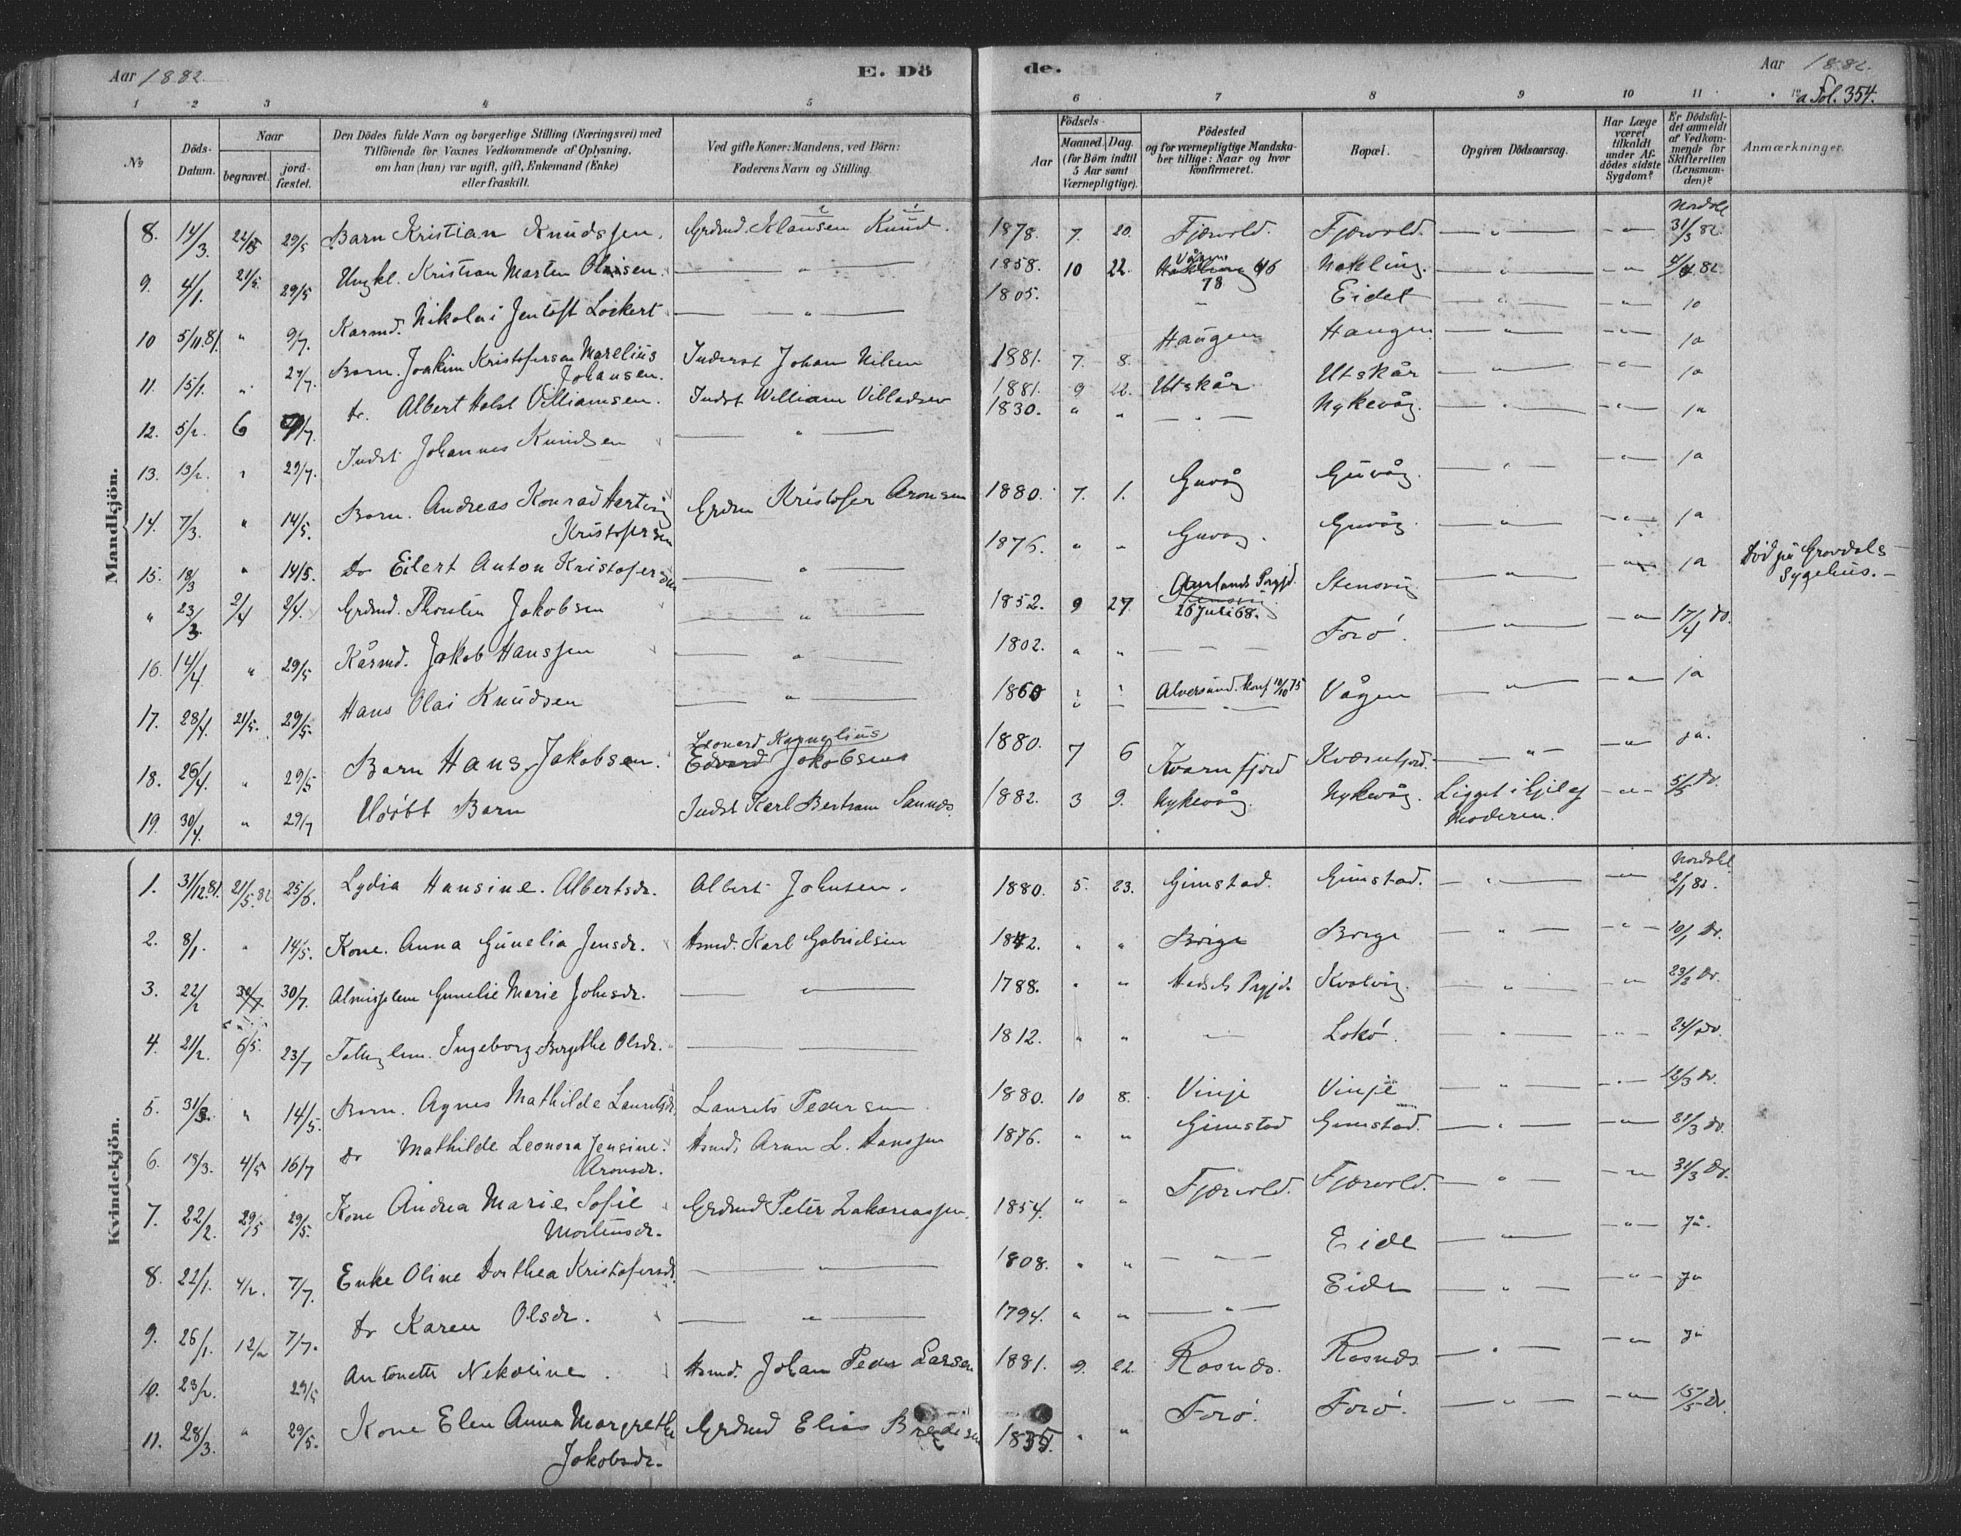 Aar 1882. E. Dö de. Aar 1882.
1 2 3 4 5 6 7 8 9 10 11 12 a Fol. 354.
No Döds-Datum. Naar begravet. jord-fæstet. Den Dödes fulde Navn og borgerlige Stilling (Næringsvei) med Tilföiende for Voxnes Vedkommende af Oplysning, om han (hun) var ugift, gift, Enkemand (Enke) eller fraskilt. Ved gifte Koner: Mandens, ved Börn: Faderens Navn og Stilling. Aar Födsels- Maaned. Dag. (for Börn indtil 5 Aar samt Værnepligtige). Födested og for værnepligtige Mandska-ber tillige: Naar og hvor konfirmeret. Bopæl. Opgiven Dödsaarsag. Har Læge været tilkaldt under Af-dödes sidste Sygdom? Er Dödsfal-det anmeldt af Vedkom-mende for Skifteretten (Lensman-den)? Anmærkninger.
Mandkjön.
8. 14/3 22/5 29/5 Barn Kristian Knudssen. Grdmd. Klausen Knud. 1878. 7. 20. Fjærvold. Fjærvold. — " — — " — Nordal 31/3 82.
9. 4/1. 21/5. 29/5 Ungkl. Kristian Marten Olaisen. — " — 1858. 10 22. 78 Nakling. — " — — " — 4/4 82.
10 5/11.81. " 9/7. Kaarmd. Nikolai Jentoft Lockert — " — 1805. — Eidet — " — — " — ja
11. 15/1. " 27/7. Barn. Joakim Kristofersen Marelius Johansen. Inderst Johan Nilsen 1881. 7. 8. Haugen Haugen — " — — " — ja
12. 5/2. 6 9/7. do. Albert Holst Villiamsen. Indst William Villadsen 1881. 9 22. Utskår. Utskår — " — — " — ja
13. 13/2 " 29/7. Indst. Johannes Knudsen — " — 1830. " " — " — Nykevåg. — " — — " — ja
14. 7/3. " 14/5. Barn. Andreas Konrad Hertvig Kristofersen Grdm Kristofer Aronsen 1880. 7. 1. Guvåg Guvåg. — " — — " — ja
15. 18/3 " 14/5. do Eilert Anton Kristofersen — " — 1876. " " Guvåg. Guvåg. — " — — " — ja
" 23/3. 2/4 2/4. Grdmd. Thostin Jakobsen — " — 1852. 9 27. Aurlands Prgjd. 26 Juli 68. Stensvig — " — — " — ja Död på Grovdals Sygehus. —
16. 14/4. " 29/5 Kårmd. Jakob Hanssen — " — 1802. " " — — Forö. — " — — " — 17/4 do.
17. 28/4. 21/5. 29/5. Hans Olai Knudsen — " — 1860 " " Alversund. Konf 10/10 75 Vågen — " — — " — ja
18. 26/4. " 29/5 Barn Hans Jakobsen. Leonard Kornelius Edvard Jakobsens 1880. 7 6 Kvarnfjord Kværnfjord. — " — — " — ja.
19. 30/4. " 29/7 Udöbt Barn Indst Karl Bertram Sannæs. 1882. 3 9. Nykevåg. Nykevåg. Ligget ihjel af Moderen. — " — 5/5 do.
Kvindekjön.
1. 31/12.81. 21/5.82 25/6. Lydia Hansine. Albertsdr. Albert Johnsen. 1880. 5. 23. Gimstad. Gimstad. — " — — " — Nordal 2/1 82.
2. 8/1. " 14/5. Kone. Anna Gunelia Jensdr. Hsmd. Karl Gabrielsen 1842. " " Börge Borge — " — — " — 10/1 do.
3. 22/2 30/7 30/7. Almisselem Gunelie Marie Johnsdr. — " — 1788. " " Hadsels Prgjd. Kvalvig. — " — — " — 23/2 do.
4. 21/2. 6/5. 23/7 Fattiglem. Ingeborg Bergithe Olsdr. — " — 1812. " " — Lokö. — " — — " — 24/2 do.
5. 31/3. " 14/5. Barn. Agnes Mathilde Lauritsdr. Laurits Pedersen 1880. 10 8. Vinje Vinje — " — — " — 12/3 do.
6. 13/3. 4/5 16/7 do Mathilde Leonora Jensine Aronsdr. Hsmd. Aron L. Hanssen 1876. " " Gimstad Gimstad. — " — — " — 21/3 do.
7. 22/2. 29/5 29/5. Kone Andrea Marie Sofie Mortensdr. Grdmd Peter Zakariassen. 1854. " " Fjærvold. Fjærvold. — " — — " — 31/3 do.
8. 22/1. 4/2. 7/7. Enke Oline Dorthea Kristofersdr. — " — 1808. " " — — — Eide — " — — " — ja.
9. 26/1. 12/2 7/7. do Karen Olsdr. — " — 1794. " " — " — Eide — " — — " — ja
10. 23/2. 29/5 Antonette Nekoline. Hsmd. Johan Peder Larsen 1881. 9. 22. Rosnæs. Rosnæs. — " — — " — ja
11. 28/3. " 29/5. Kone Elen Anna Margrethe Jakobsdr. Grdmd Elias Bredesen 1835. " " Forö. Forö. — " — — " — 15/5 do.